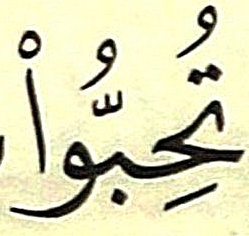 تُحِبُّواْ